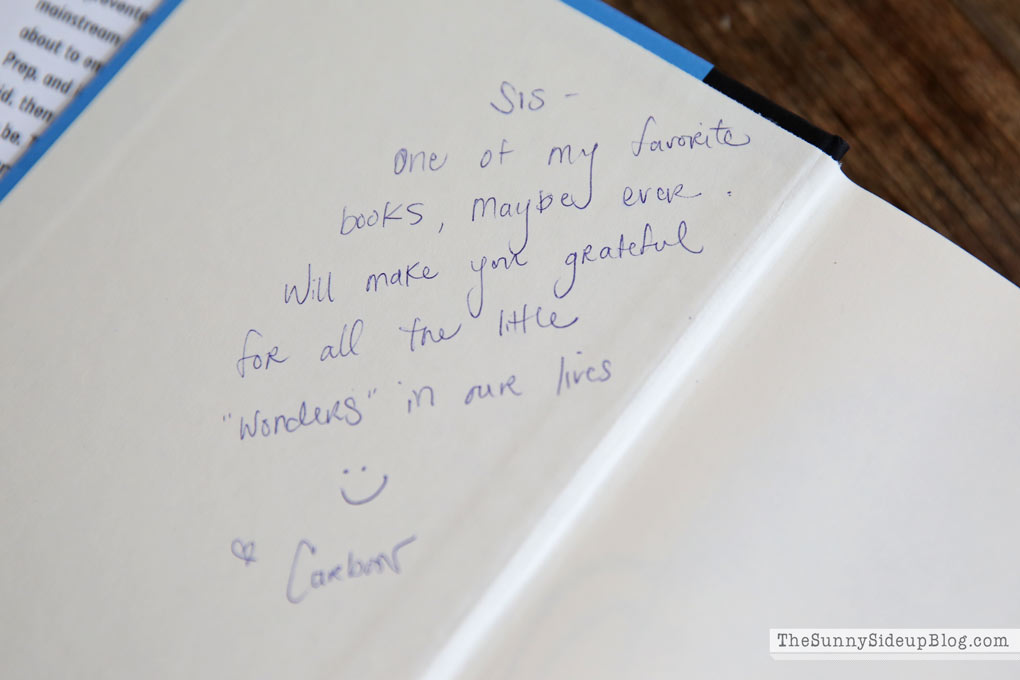 mainstream
about to en
Prep. and
id, then
be.
SIS -
One of my favorite
books, maybe ever.
Will make your grateful
for all the little
"wonders" in our lives
TheSunnySideupBlog.com